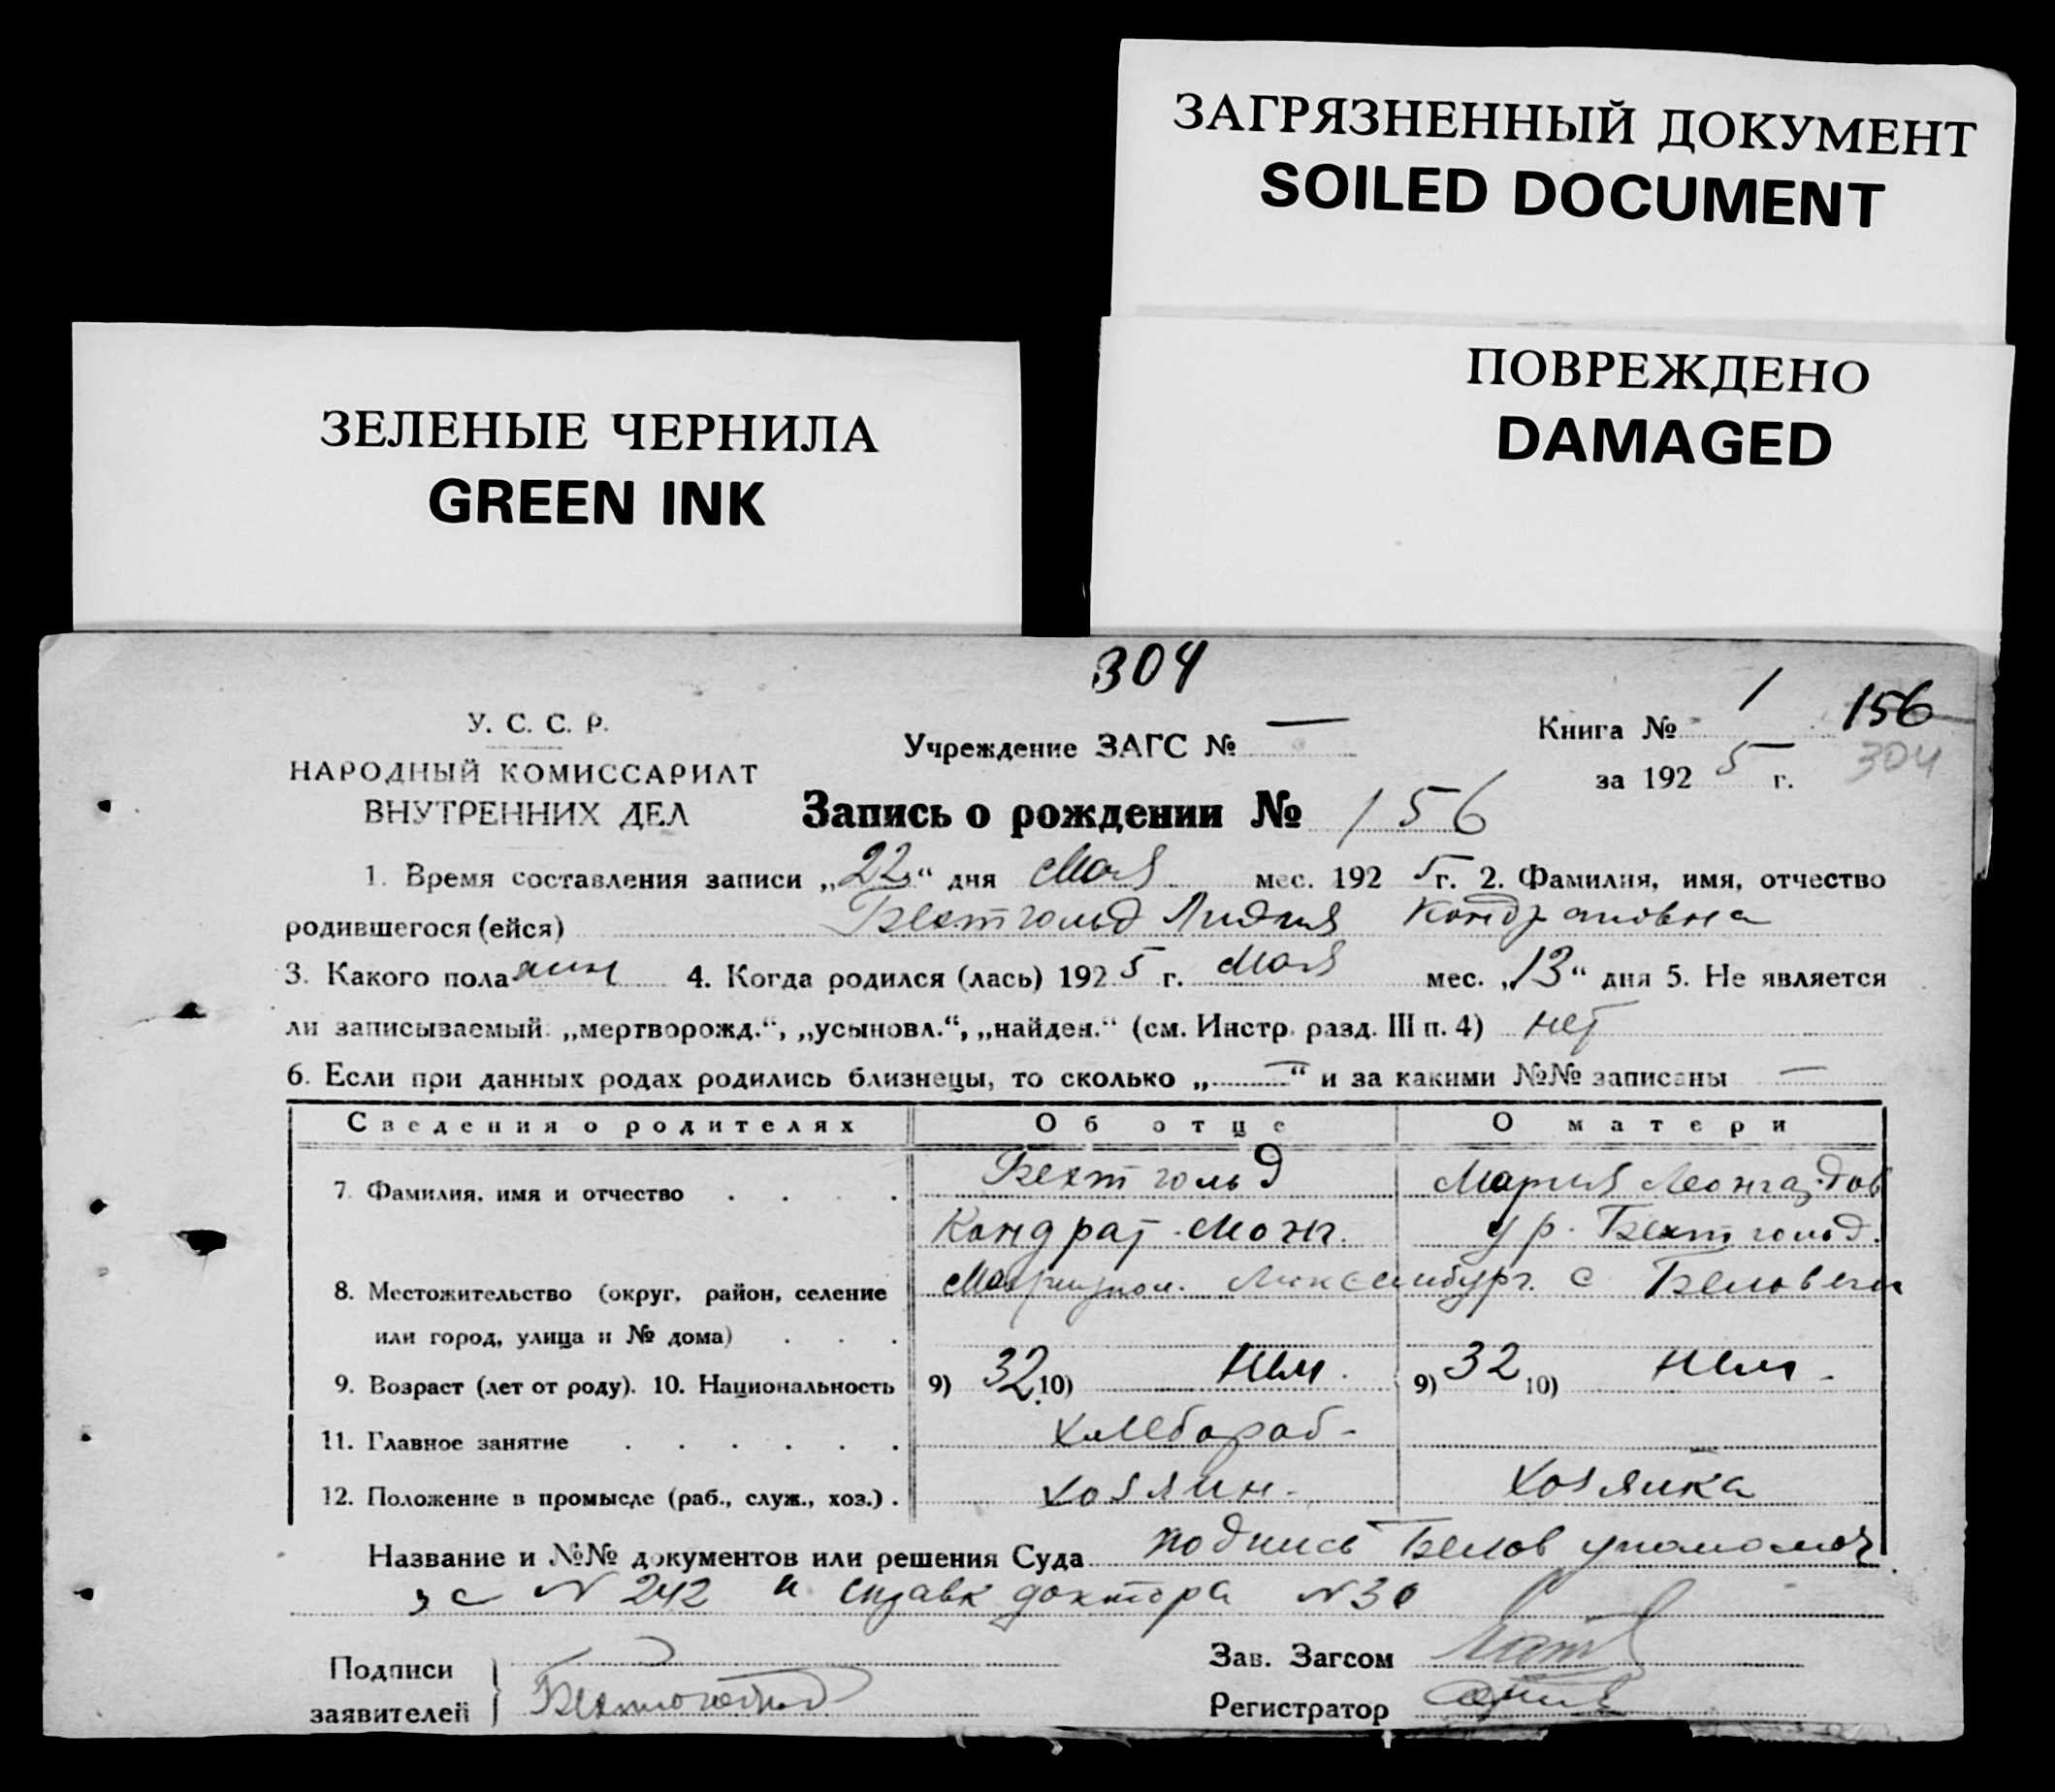 ЗАГРЯЗНЕННЫЙ ДОКУМЕНТ
SOILED DOCUMENT
ПОВРЕЖДЕНО
DAMAGED
ЗЕЛЕНЫЕ ЧЕРНИЛА
GREEN INK
304
У. С. С. Р.
НАРОДНЫЙ КОМИССАРИАТ
ВНУТРЕННИХ ДЕЛ
Учреждение ЗАГС № —
Книга № 1 156
за 192 5 г. 304
Запись о рождении № 156
1. Время составления записи „22“ дня Мая мес. 192 5 г. 2. Фамилия, имя, отчество
родившегося (ейся) Бехтгольд Лидия Кондратовна
3. Какого пола жин 4. Когда родился (лась) 192 5 г. Мая мес. „13“ дня 5. Не является
ли записываемый „мертворожд.“, „усыновл.“, „найден.“ (см. Инстр. разд. III п. 4) нет
6. Если при данных родах родились близнецы, то сколько „—“ и за какими №№ записаны —
Сведения о родителях Об отце О матери
7. Фамилия, имя и отчество Бехтгольд Мария
Кондрат ур. Бехтгольд.
8. Местожительство (округ, район, селение Мариупол. Люксембург. с Беловеж
или город, улица и № дома)
9. Возраст (лет от роду). 10. Национальность 9) 32 10) Нем. 9) 32 10) Нем.
11. Главное занятие хлебороб-
12. Положение в промысле (раб., служ., хоз.) хозяин- хозяйка
Название и №№ документов или решения Суда подпись Белов уполомоч
за N 242 и справк доктора N 30
Подписи
заявителей Бехтгольд
Зав. Загсом
Регистратор